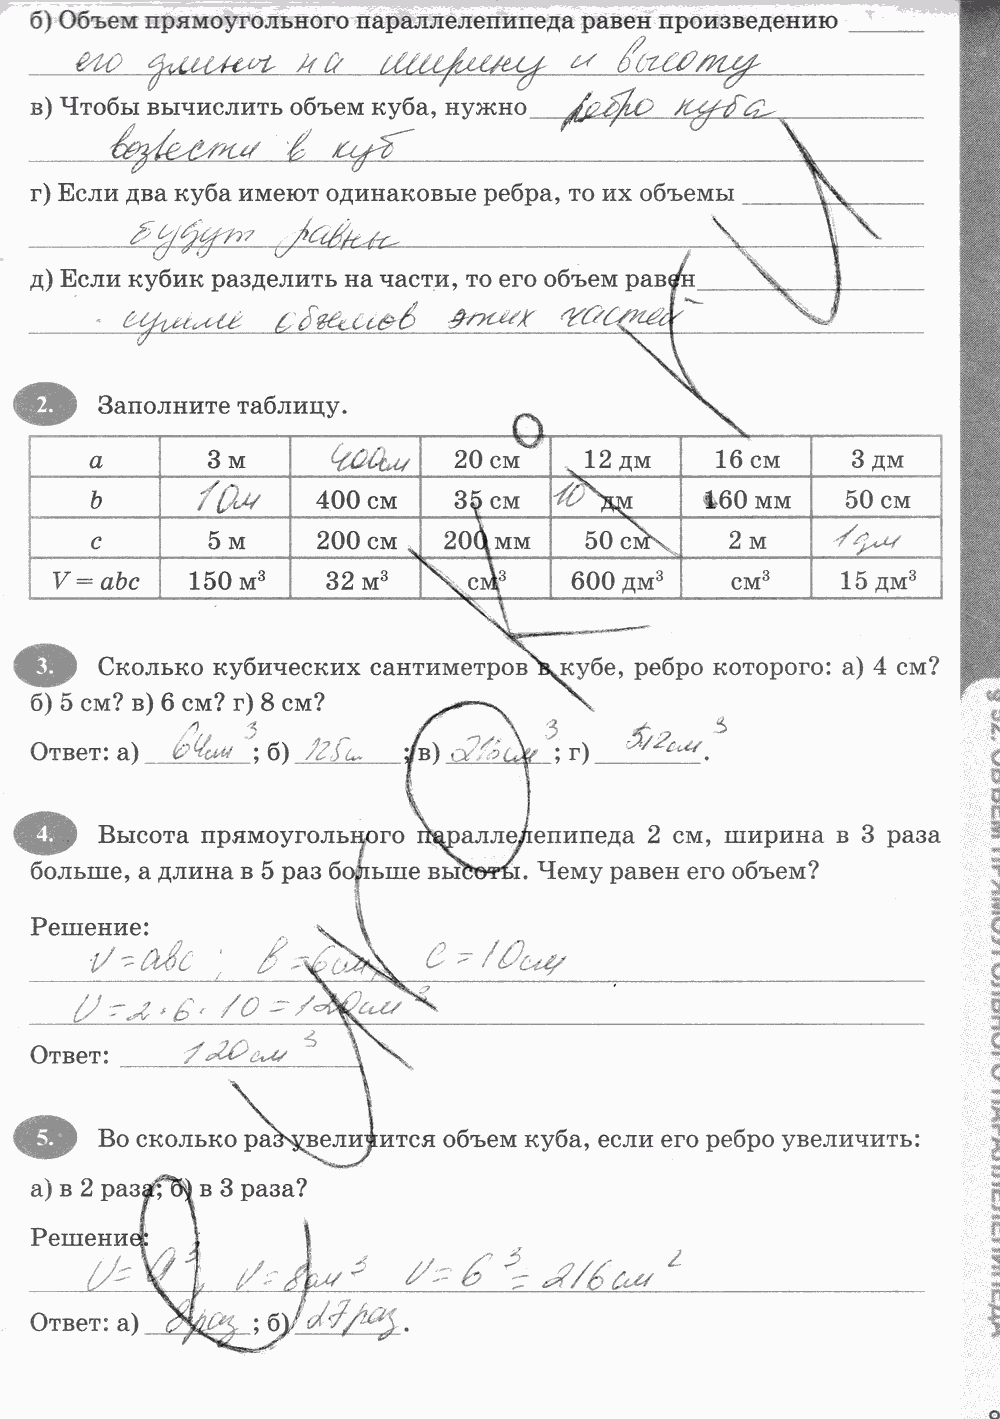 б) Объем прямоугольного параллелепипеда равен произведению
его длины на ширину и высоту
в) Чтобы вычислить объем куба, нужно ребро куба
возвести в куб
г) Если два куба имеют одинаковые ребра, то их объемы
будут равны
д) Если кубик разделить на части, то его объем равен
сумме объемов этих частей
2. Заполните таблицу.
a 3 м 400см 20 см 12 дм 16 см 3 дм
b 10м 400 см 35 см 10 дм 160 мм 50 см
c 5 м 200 см 200 мм 50 см 2 м 1дм
V = abc 150 м³ 32 м³ см³ 600 дм³ см³ 15 дм³
3. Сколько кубических сантиметров в кубе, ребро которого: а) 4 см?
б) 5 см? в) 6 см? г) 8 см?
Ответ: а) 64см³; б) 125см; в) 216см³; г) 512см³.
4. Высота прямоугольного параллелепипеда 2 см, ширина в 3 раза
больше, а длина в 5 раз больше высоты. Чему равен его объем?
Решение:
V=abc; в=6см, c=10см
V=2·6·10=120см³
Ответ: 120см³
5. Во сколько раз увеличится объем куба, если его ребро увеличить:
а) в 2 раза; б) в 3 раза?
Решение:
V=a³, V=8см³ V=6³=216см²
Ответ: а) 8раз; б) 27раз.
§ 32. ОБЪЕМ ПРЯМОУГОЛЬНОГО ПАРАЛЛЕЛЕПИПЕДА